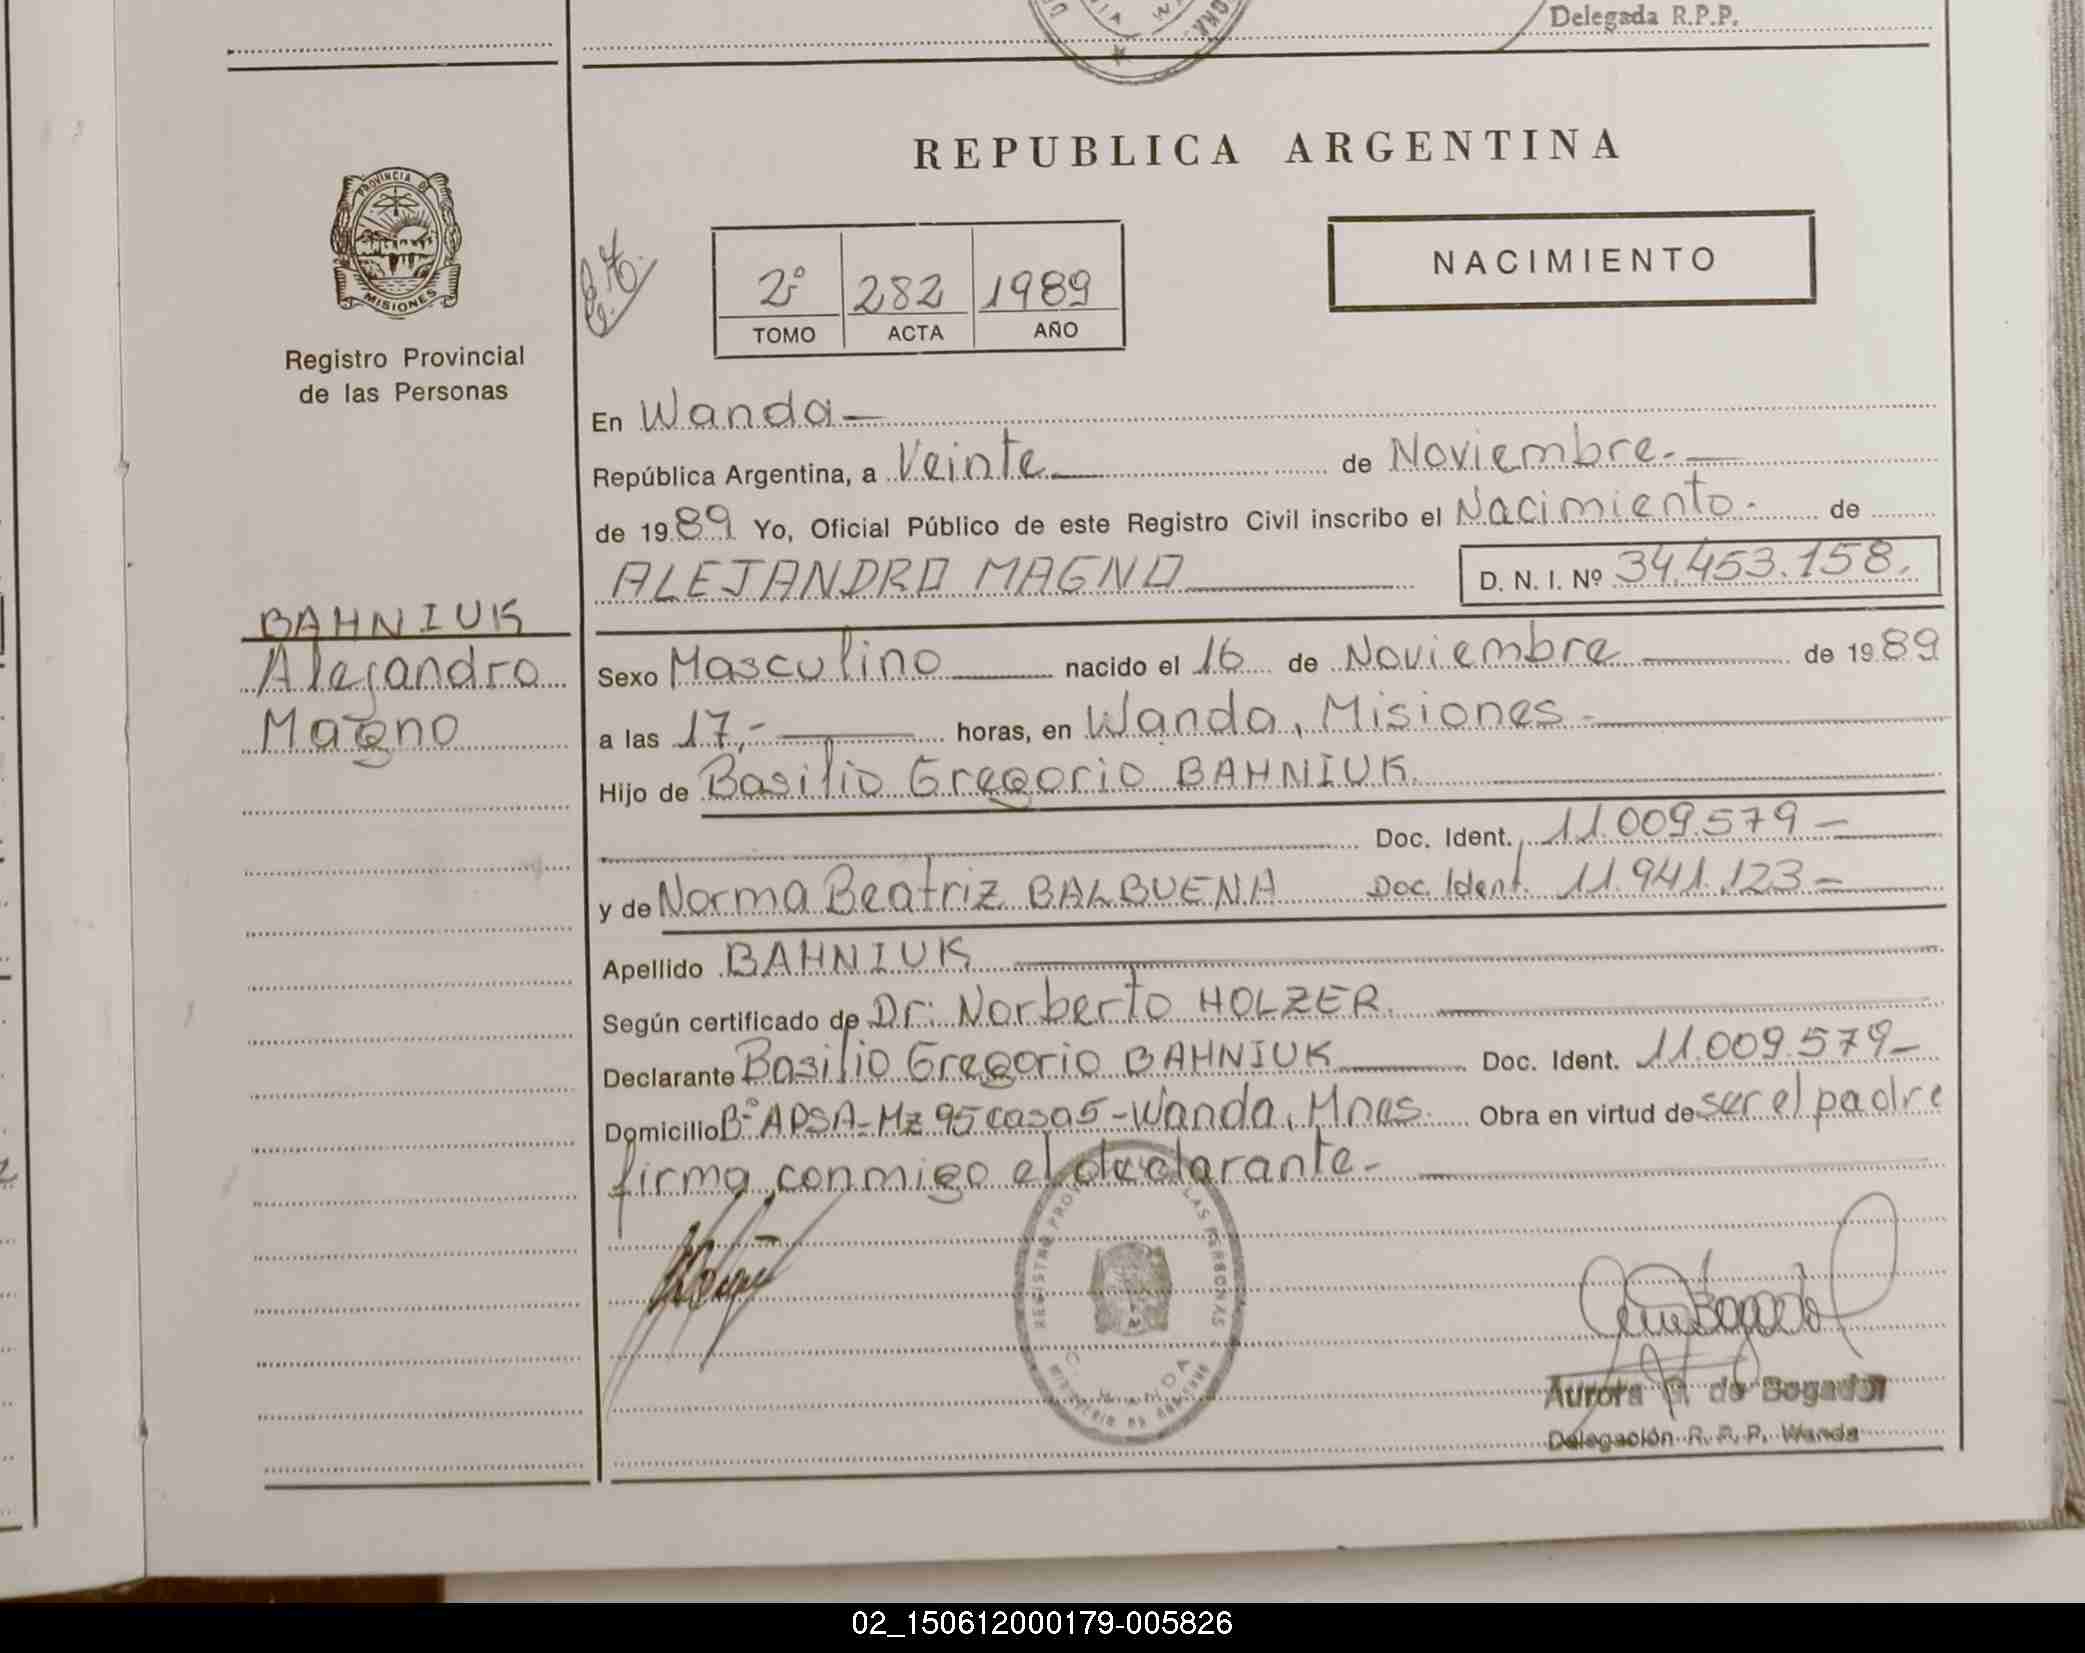 Delegada R.P.P.
PROVINCIA DE
MISIONES
Registro Provincial
de las Personas
REPUBLICA ARGENTINA
2º 282 1989
TOMO ACTA AÑO
NACIMIENTO
En Wanda
República Argentina, a Veinte de Noviembre.
de 1989 Yo, Oficial Público de este Registro Civil inscribo el Nacimiento. de
ALEJANDRO MAGNO D. N. I. Nº 34.453.158.
BAHNIUK
Alejandro
Magno
Sexo Masculino nacido el 16 de Noviembre de 1989
a las 17,- horas, en Wanda, Misiones -
Hijo de Basilio Gregorio BAHNIUK.
Doc. Ident. 11.009.579 -
y de Norma Beatriz BALBUENA Doc. Ident. 11.941.123 -
Apellido BAHNIUK
Según certificado de Dr: Norberto HOLZER.
Declarante Basilio Gregorio BAHNIUK Doc. Ident. 11.009.579 -
Domicilio Bº APSA - Mz 95 casa 5 - Wanda, Mnes. Obra en virtud de ser el padre
firma conmigo el declarante. -
REGISTRO LAS PERSONAS
WANDA
Aurora G. de Bogado
Delegación R. P. P. Wanda
02_150612000179-005826